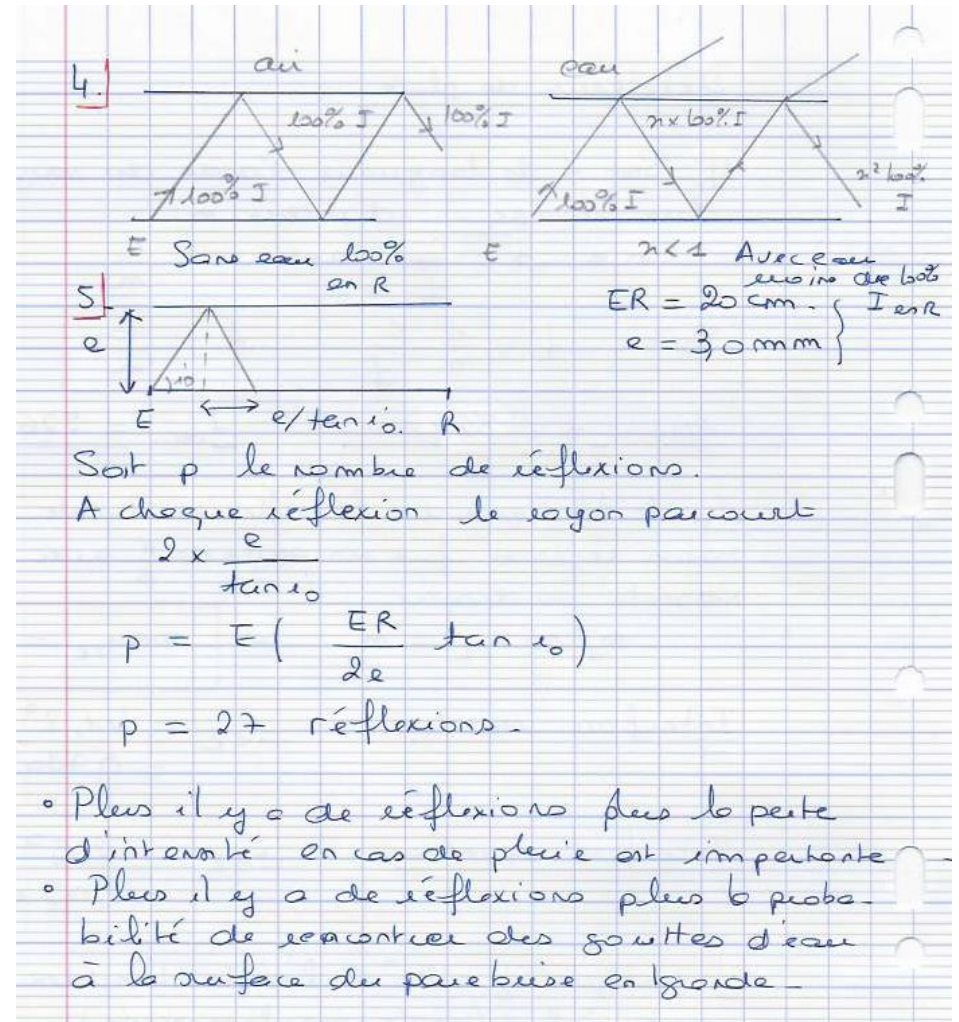 4.
air
eau
100% I
100% I
100% I
E
Sans eau 100%
en R
n x 100% I
100% I
n² 100%
I
E
n < 1
Avec eau
moins de 100%
I en R
5
e
i0
E
e/tan i0.
R
ER = 20 cm.
e = 3,0 mm
Soit p le nombre de réflexions.
A chaque réflexion le rayon parcourt
2 x e/tan i0
p = E ( ER/2e tan i0 )
p = 27 réflexions.
• Plus il y a de réflexions plus la perte
d'intensité en cas de pluie est importante.
• Plus il y a de réflexions plus la proba-
bilité de rencontrer des gouttes d'eau
à la surface du parebrise en grande.